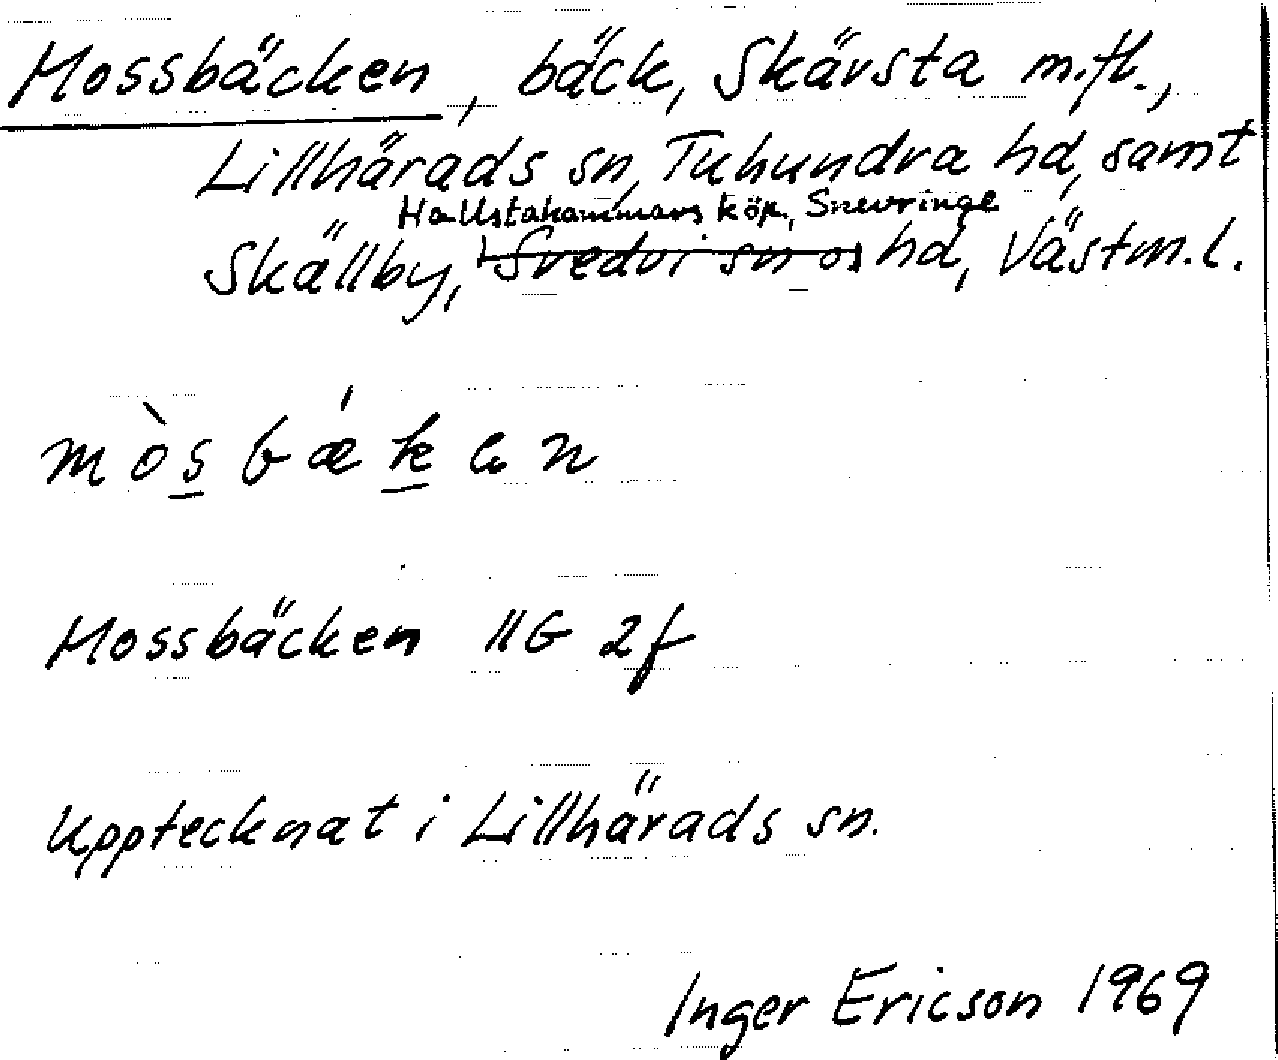 Mossbäcken, bäck, Skävsta m.fl.,
Lillhärads sn, Tuhundra hd, samt
Hallstahammars köp, Snevringe
Skällby, Svedvi sn os hd, Västm.l.
mòsbǽken
Mossbäcken 11G 2f
Upptecknat i Lillhärads sn.
Inger Ericson 1969